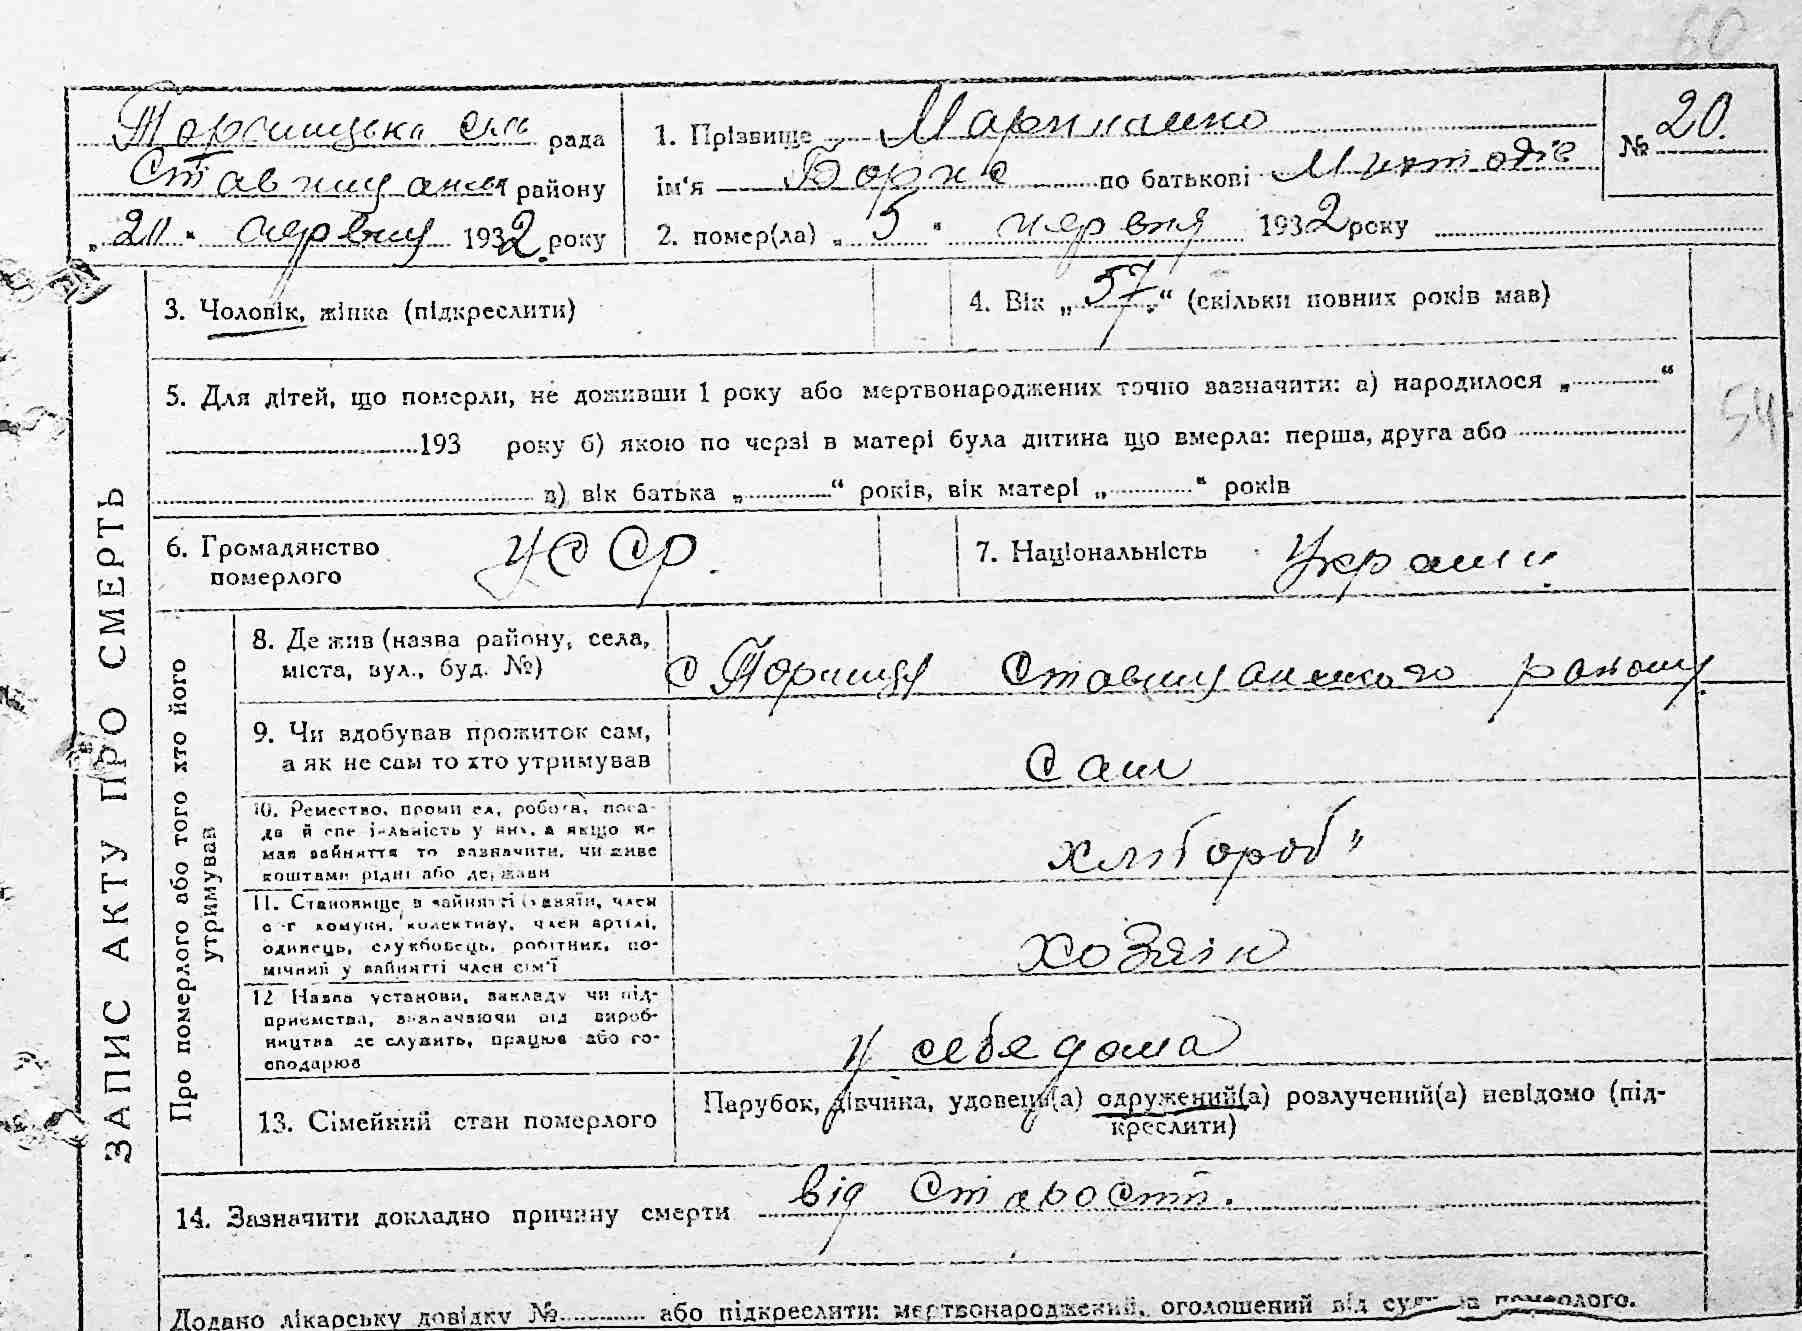 60
Торчицька сіль рада
Ставищанськ району
„20" червня 1932. року
1. Прізвище Маринченко
ім'я Борис по батькові
№ 20.
2. помер(ла) „5" червня 1932 року
ЗАПИС АКТУ ПРО СМЕРТЬ
3. Чоловік, жінка (підкреслити)
4. Вік „57" (скільки повних років мав)
5. Для дітей, що померли, не доживши 1 року або мертвонароджених точно зазначити: а) народилося „ “
54
193 року б) якою по черзі в матері була дитина що вмерла: перша, друга або
в) вік батька „ “ років, вік матері „ “ років
6. Громадянство
померлого
УССР.
7. Національність Украин.
Про померлого або того хто його
утримував
8. Де жив (назва району, села,
міста, вул., буд. №)
с Торчиця Ставищанського району
9. Чи вдобував прожиток сам,
а як не сам то хто утримував
Сам
10. Ремество, промисел, робота, поса-
да й спеціяльність у них, а якщо не
мав вайняття то вазначити, чи живе
коштами рідні або держави
хлібороб"
11. Становище в вайнятті (хазяїн, член
с-г комуни, колективу, член артілі,
одинець, службовець, робітник, по-
мічний у вайнятті член сім'ї
хозяін
12 Назва установи, закладу чи під-
приємства, вазначаючи від вироб-
ництва де служить, працює або го-
сподарює
у себя дома
13. Сімейний стан померлого
Парубок, дівчина, удовець(а) одружений(а) розлучений(а) невідомо (під-
креслити)
14. Зазначити докладно причину смерти від Старости.
Додано лікарську довідку № або підкреслити: мертвонароджений, оголошений від суду за померлого.